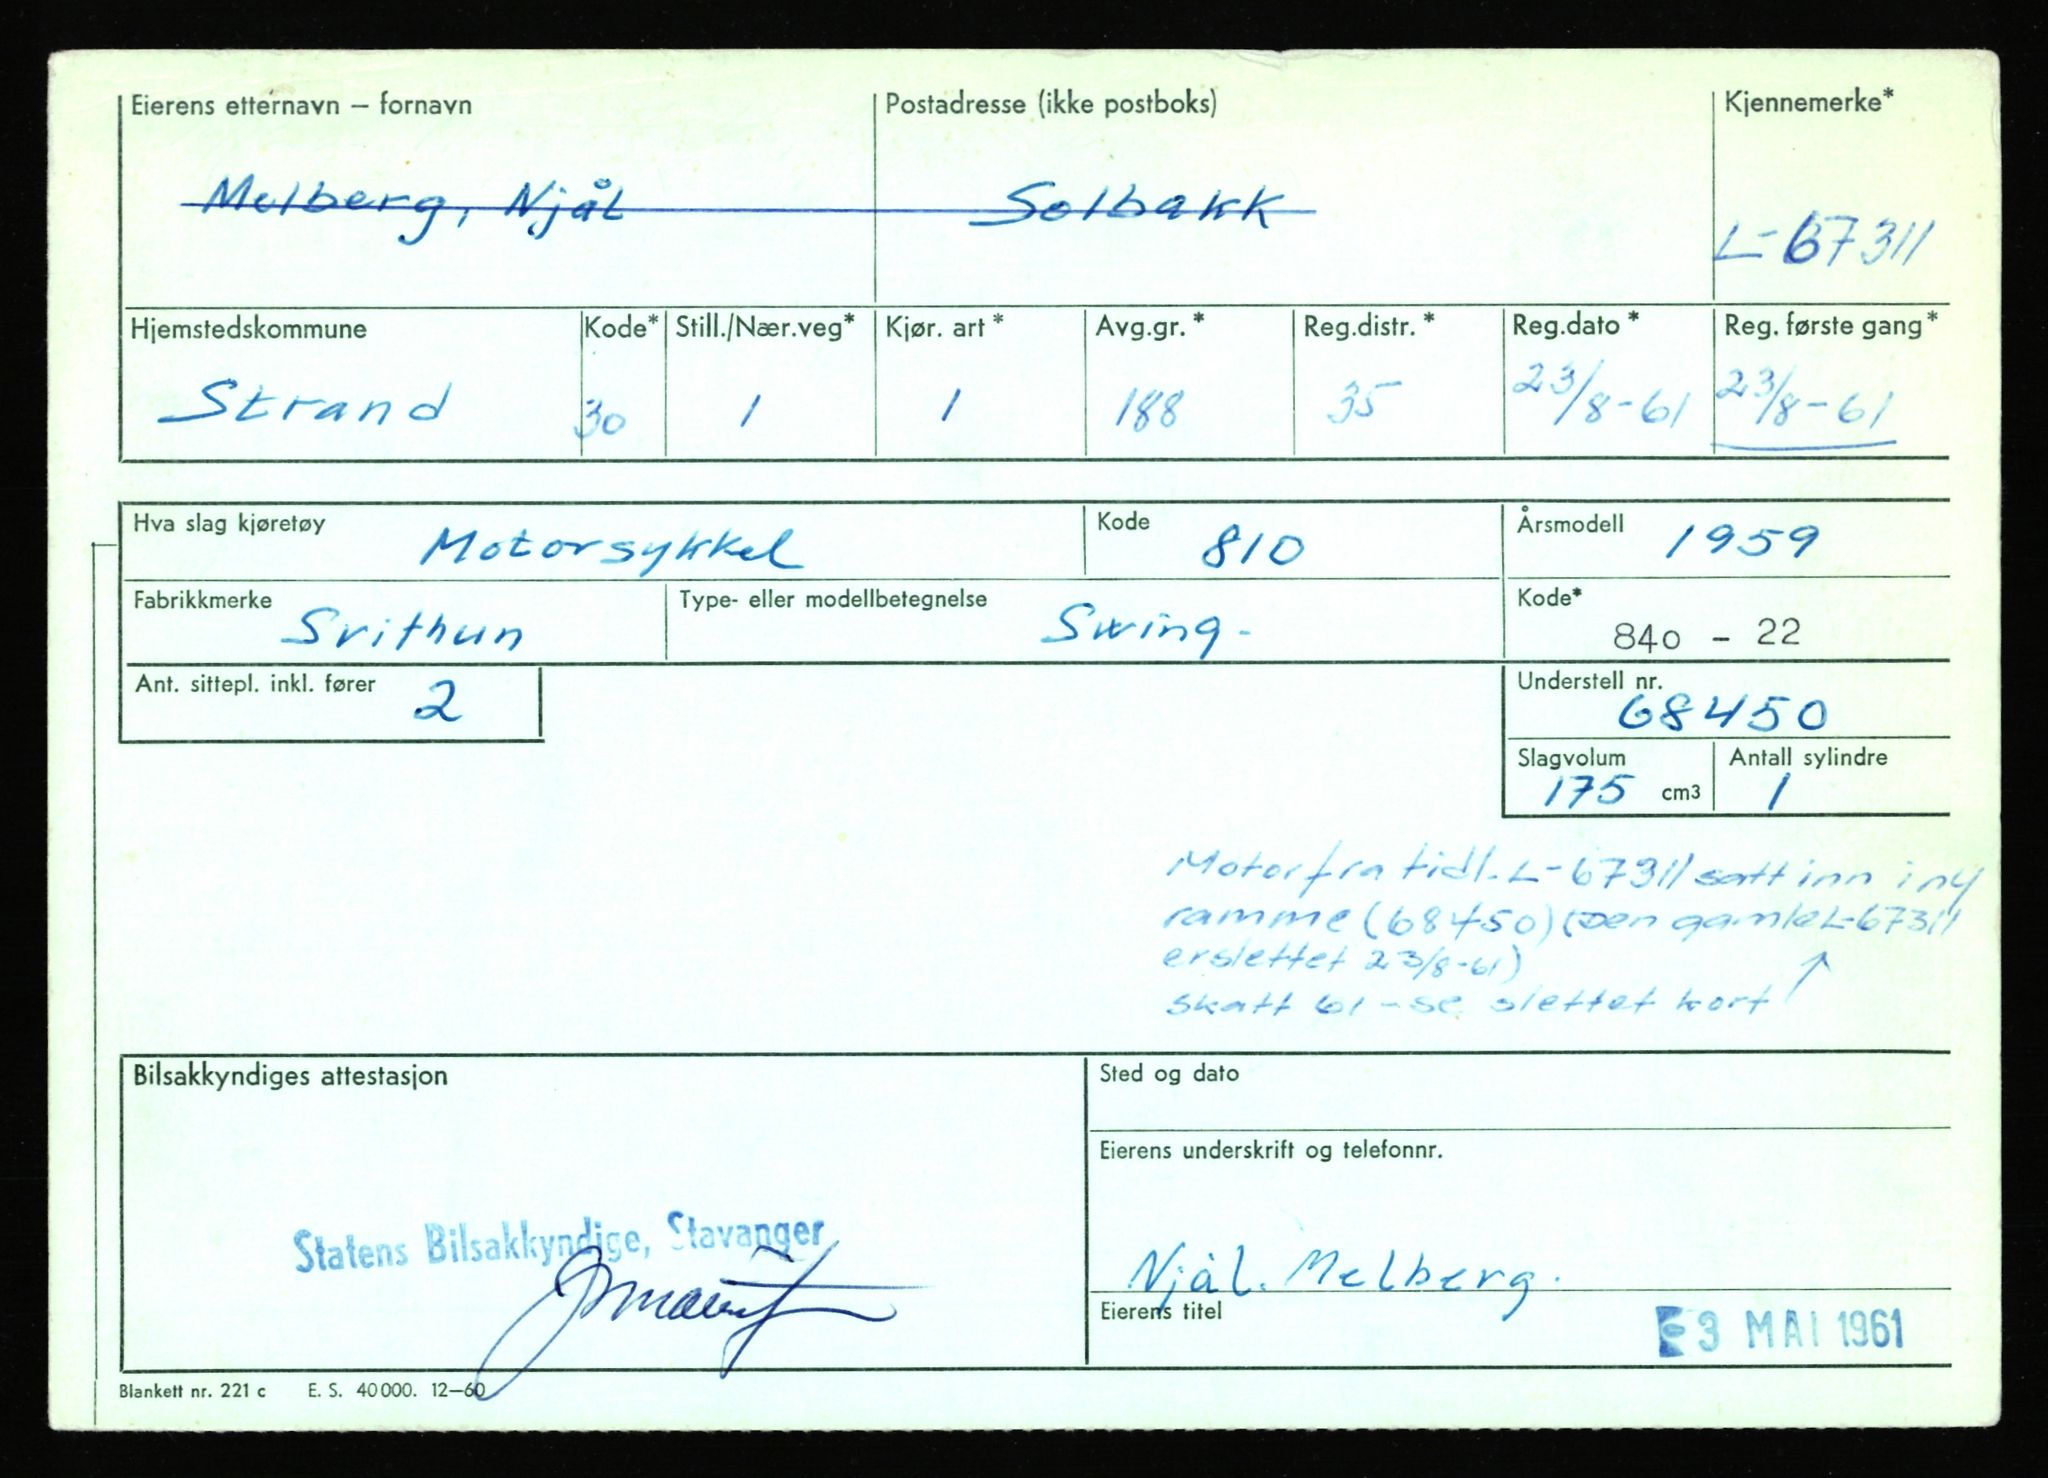 Eierens etternavn – fornavn Postadresse (ikke postboks) Kjennemerke*
Melberg, Njål Solbakk
L-67311
Hjemstedskommune Kode* Still./Nær.veg* Kjør. art* Avg.gr.* Reg.distr.* Reg.dato* Reg. første gang*
Strand 30 1 1 188 35 23/8-61 23/8-61
Hva slag kjøretøy Motorsykkel Kode 810 Årsmodell 1959
Fabrikkmerke Svithun Type- eller modellbetegnelse Swing- Kode* 840 - 22
Ant. sittepl. inkl. fører 2 Understell nr. 68450
Slagvolum Antall sylindre
175 cm3 1
Motor fra tidl. L-67311 satt inn i ny
ramme (68450) (Den gamle L-67311
er slettet 23/8-61)
skatt 61 - se slettet kort
Bilsakkyndiges attestasjon Sted og dato
Eierens underskrift og telefonnr.
Statens Bilsakkyndige, Stavanger
Njål. Melberg.
Eierens titel
3 MAI 1961
Blankett nr. 221 c E. S. 40000. 12–60